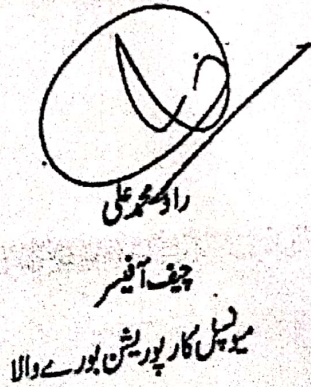 راؤ محمد علی
چیف آفیسر
میونسپل کارپوریشن بورے والا